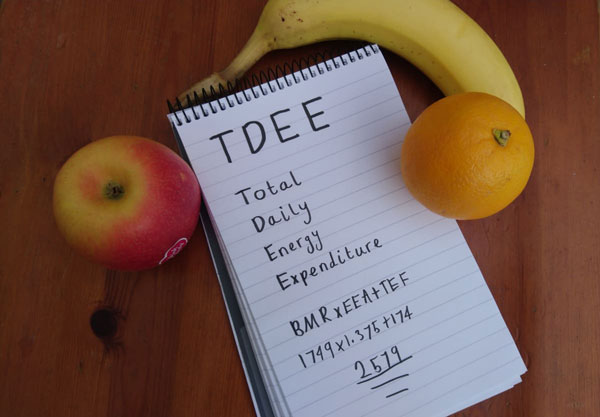 TDEE
Total
Daily
Energy
Expenditure
BMR x EEA + TEF
1749 x 1.375 + 174
2579